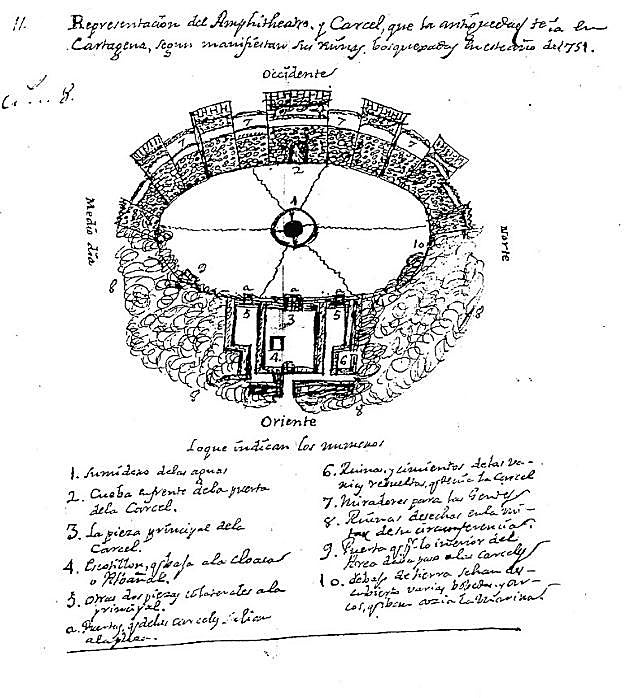 11. Representacion del Amphitheatro, y Carcel, que la antiguedad tenia en
Cartagena, segun manifiestan sus ruinas, bosquexadas en este año de 1751.
8.
Occidente
7
7
7
7
2
1
Medio dia
Norte
10
9
a
a
a
5
3
5
4.
6
8
8
8
8
Oriente
Lo que indican los numeros
1. Sumidero de las aguas
2. Cueba enfrente de la puerta
de la Carcel.
3. La pieza principal de la
Carcel.
4. Escotillon, q baja a la cloaca
o Albañal.
5. Otras dos piezas colaterales a la
principal.
a. Puertas, q de las carceles salian
a la plaza.
6. Ruinas, y cimientos de las va-
rias y rebueltas, q tenia la Carcel
7. Miradores para las Gentes
8. Ruinas desechas en la mi-
tad de su circumferencia.
9. Puerta q p.r lo interior del
Area daba paso a las carceles
10. debajo de tierra se han des-
cubierto varias bobedas, y ar-
cos, q iban azia la Marina.